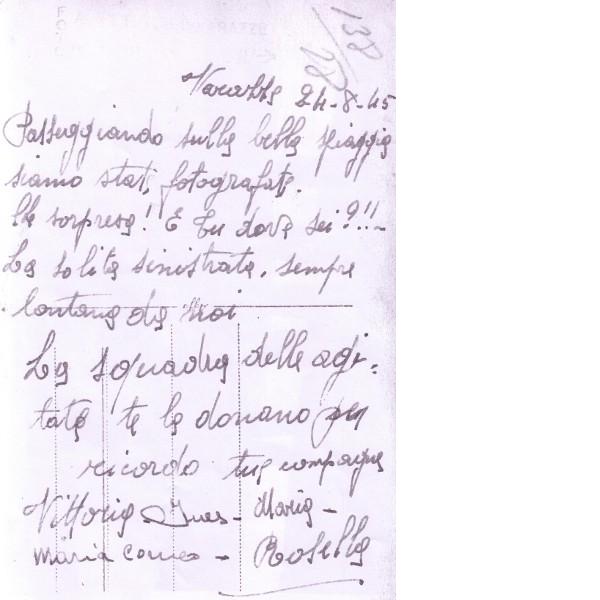 138
28
Varazze 24-8-45
Passeggiando sulla bella spiaggia
siamo stati fotografate.
che sorpresa! E tu dove sei?!!-
La solita sinistrata. sempre
lontana da noi
La squadra delle agi=
tate te la donano per
ricordo tue compagne
Vittoria Ines - Maria -
Maria - Rosella